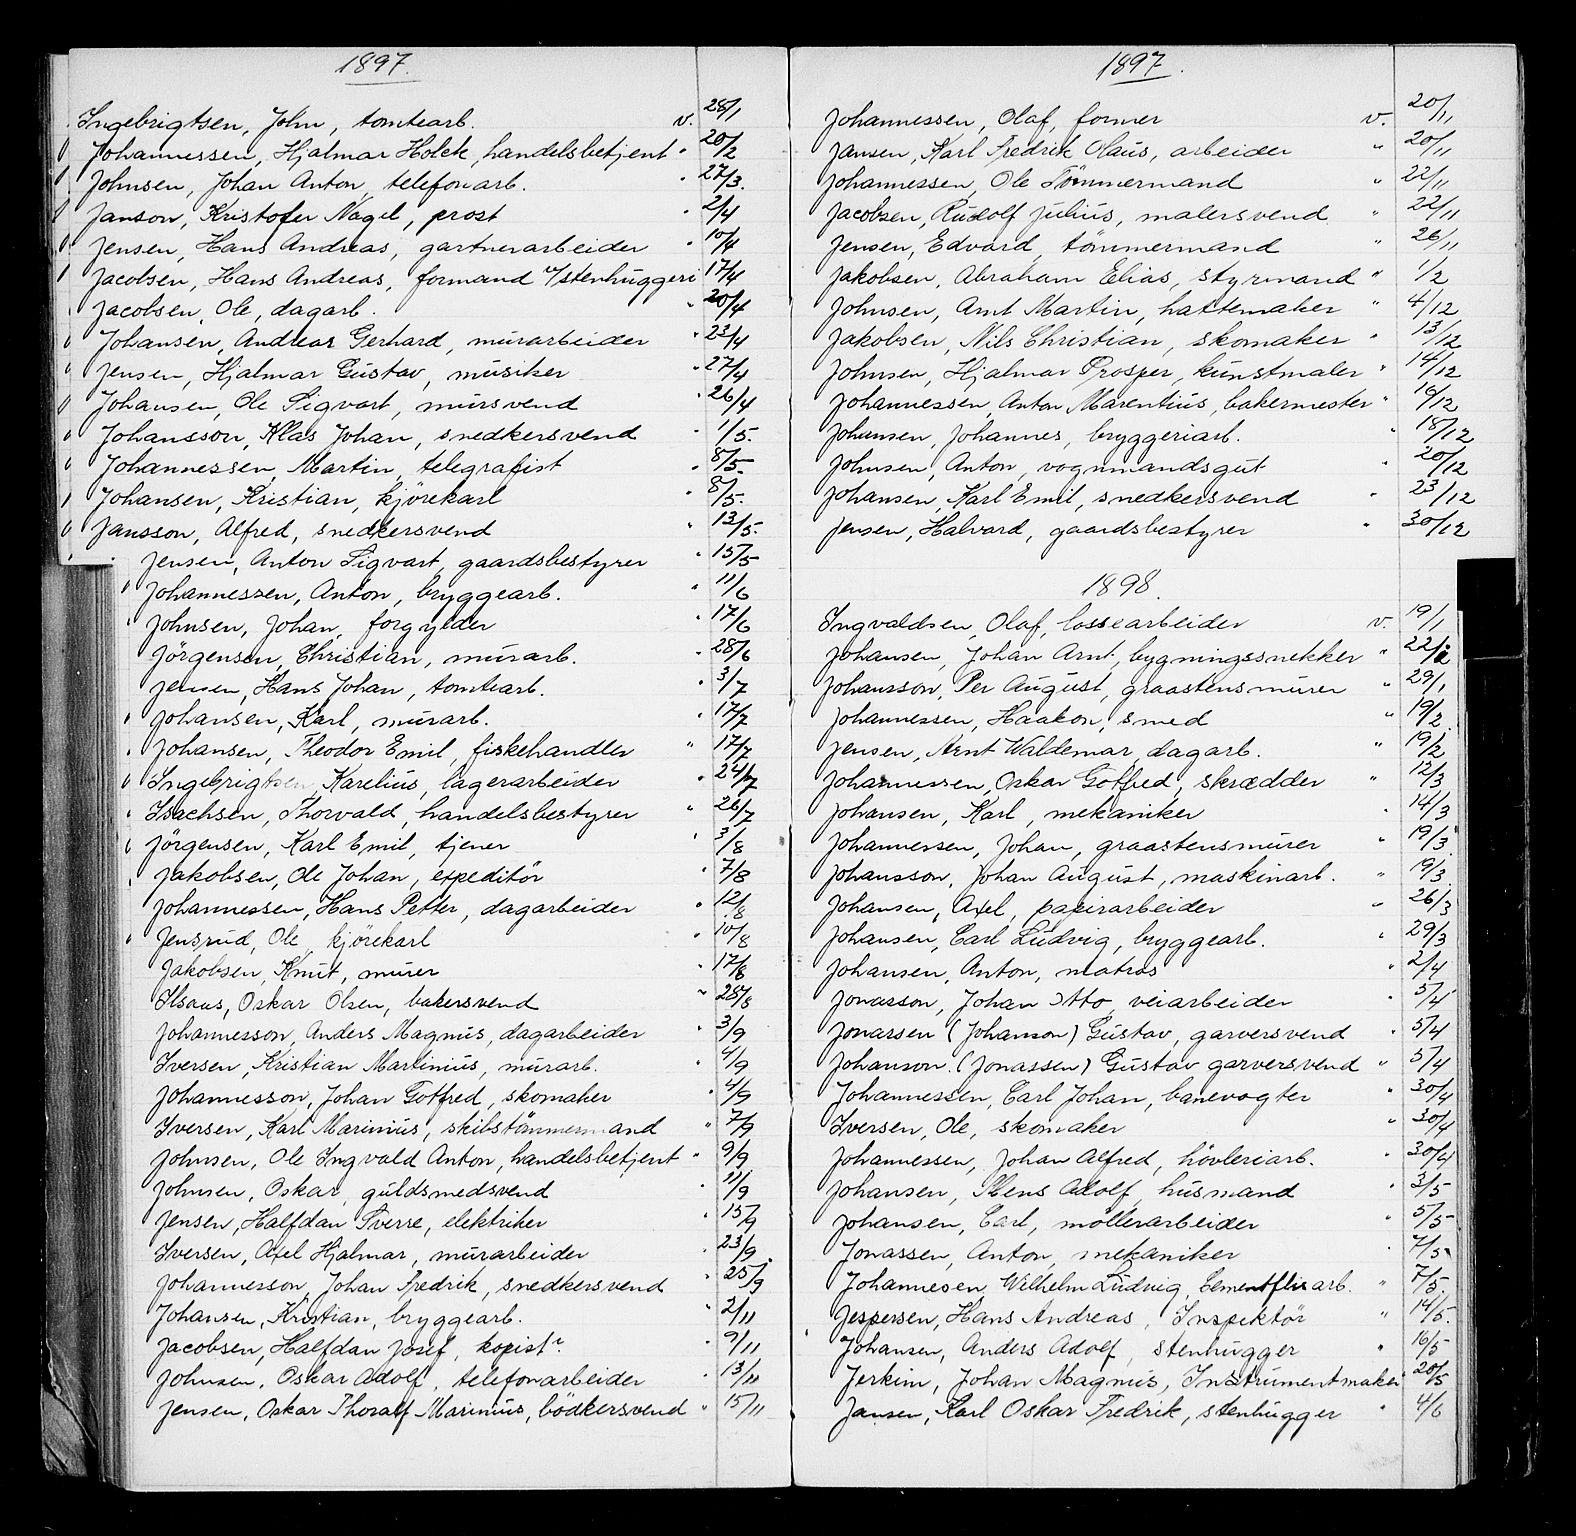 1897.
Ingebrigtsen, John, tomtearb. v. 28/1
Johannessen, Hjalmar Holck, handelsbetjent " 20/2
Johnsen, Johan Anton, telefonarb. " 27/3.
Janson, Kristofer Nagel, prost " 2/4
Jensen, Hans Andreas, gartnerarbeider " 10/4
Jacobsen, Hans Andreas, formand v/stenhuggeri 17/4
Jacobsen, Ole, dagarb. " 20/4
Johansen, Andreas Gerhard, murarbeider " 23/4
Jensen, Hjalmar Gustav, musiker " 27/4
Johansen, Ole Sigvart, mursvend " 26/4
Johansson, Klas Johan, snedkersvend " 1/5.
Johannessen, Martin, telegrafist " 8/5.
Johansen, Kristian, kjörekarl " 8/5.
Jansson, Alfred, snedkersvend " 13/5.
Jensen, Anton Sigvart, gaardsbestyrer " 15/5
Johannessen, Anton, bryggearb. " 11/6
Johnsen, Johan, forgylder " 17/6
Jörgensen, Christian, murarb. " 28/6
Jensen, Hans Johan, tomtearb. " 3/7
Johansen, Karl, murarb. " 17/7
Johansen, Theodor Emil, fiskehandler " 17/7
Ingebrigtsen, Karelius, lagerarbeider " 24/7
Isachsen, Thorvald, handelsbestyrer " 26/7
Jörgensen, Karl Emil, tjener " 3/8
Jakobsen, Ole Johan, expeditör " 7/8
Johannessen, Hans Petter, dagarbeider " 12/8
Jensrud, Ole, kjörekarl " 10/8
Jakobsen, Knut, murer " 17/8
Ilsaas, Oskar Olsen, bakersvend " 28/8
Johannesson, Anders Magnus, dagarbeider " 3/9
Iversen, Kristian Martinius, murarb. " 4/9
Johannesson, Johan Gotfred, skomaker " 4/9
Iversen, Karl Marinius, skibstömmermand " 7/9
Johnsen, Ole Ingvald Anton, handelsbetjent " 9/9
Johnsen, Oskar, guldsmedsvend " 11/9
Jensen, Halfdan Sverre, elektriker " 15/9
Iversen, Axel Hjalmar, murarbeider " 23/9.
Johannesson, Johan Fredrik, snedkersvend " 25/9
Johansen, Kristian, bryggearb. " 2/11
Jacobsen, Halfdan Josef, kopist " 9/11
Johnsen, Oskar Adolf, telefonarbeider " 13/11
Jensen, Oskar Thoralf Marinius, bödkersvend " 15/11
1897.
Johannessen, Olaf, former v. 20/11
Jansen, Karl Fredrik Olaus, arbeider " 20/11
Johannessen, Ole Tömmermand " 22/11
Jacobsen, Rudolf Julius, malersvend " 22/11
Jensen, Edvard, tömmermand " 26/11
Jakobsen, Abraham Elias, styrmand " 1/2
Johnsen, Arnt Martin, hattemaker " 4/12
Jakobsen, Nils Christian, skomaker " 13/12
Johnsen, Hjalmar Prosper, kunstmaler " 14/12
Johannessen, Anton Marentius, bakermester " 16/12
Johansen, Johannes, bryggeriarb. " 18/12
Johnsen, Anton, vognmandsgut " 20/12
Johansen, Karl Emil, snedkersvend " 23/12
Jensen, Halvard, gaardsbestyrer " 30/12
1898.
Ingvaldsen, Olaf, lossearbeider v. 19/1
Johansen, Johan Arnt, bygningssnekker " 22/1
Johansson, Per August, graastensmurer " 29/1
Johannessen, Haakon, smed " 19/2
Jensen, Arnt Waldemar, dagarb. " 19/2
Johannessen, Oskar Gotfred, skrædder " 12/3
Johansen, Karl, mekaniker " 14/3
Johannessen, Johan, graastensmurer " 19/3
Johansson, Johan August, maskinarb. " 19/3
Johansen, Axel, papirarbeider " 26/3
Johansen, Carl Ludvig, bryggearb. " 29/3
Johansen, Anton, matros " 2/4
Jonasson, Johan Otto, veiarbeider " 5/4
Jonassen (Johanson) Gustav, garversvend " 5/4
Johanson. (Jonassen) Gustav garversvend " 5/4
Johannessen, Carl Johan, banevogter " 30/4
Iversen, Ole, skomaker " 30/4
Johannessen, Johan Alfred, hövleriarb. " 30/4
Johansen, Adolf, husmand " 3/5
Johansen, Carl, möllerarbeider " 5/5
Jonassen, Anton, mekaniker " 7/5
Johannesen, Wilhelm Ludvig, Cementflisarb. " 7/5.
Jespersen, Hans Andreas, Inspektör " 14/5.
Johansen, Anders Adolf, stenhugger " 16/5
Jerkin, Johan Magnus, Instrumentmaker 20/5
Jansen, Karl Oskar Fredrik, stenhugger " 4/6